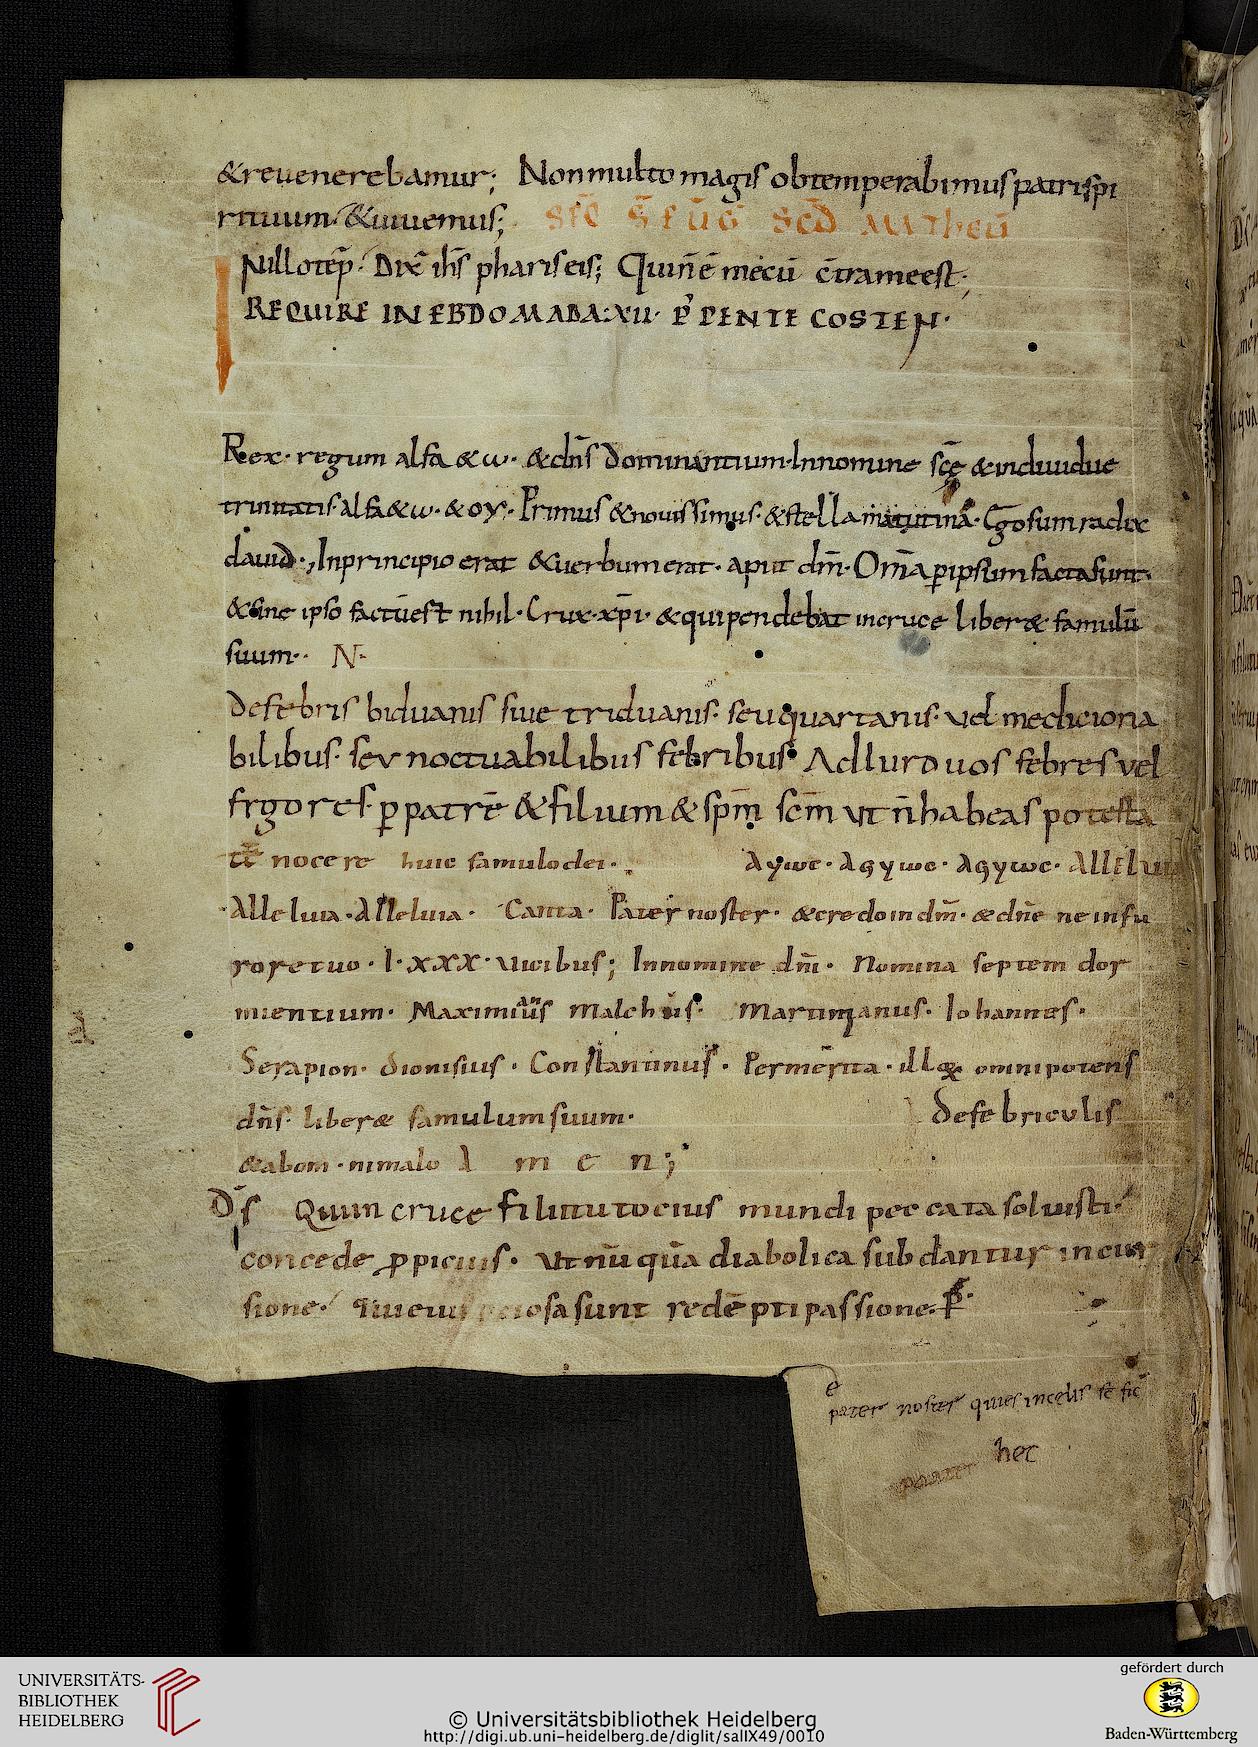 &reuenerebamur; Nonmulto magis obtemperabimus patrispi
rituum·&uiuemus; SEC̄ S̄ EŪG SCD̄ MATheū
INillotēp̄· Dix̄ ihs̄ phariseis; Quin̄ē mecū c̄trameest;
REQUIRE IN EBDOMADA·XII· P̄ PENTECOSTEN·
Rex· regum alfa & ω· & dn̄s dominantium· Innomine scē &indiuidue
trinitatis· alfa&ω·&oy· Primus &nouissimus· &stella matutina· Egosum radix
dauid·, Inprincipio erat &uerbum erat· aput dm̄· Omā p ipsum facta sunt·
&sine ipso factū est nihil· Crux·xp̄i· &qui pendebat incruce liber& famulū
suum·· N·
Defebris biduanis siue triduanis· seu quartanis· vel mediciona
bilibus· sev noctuabilibus febribus· Adiuro uos febres vel
frgores· p patrē &filium & spm̄ scm̄ vt n̄ habeas potesta
tē nocere huic famulo dei·
Aγωc· Aγωc· Aγωc· Allelu
Alleluia· Alleluia· Canta· Pater noster· &credo in dm̄· &dn̄e ne infu
rore tuo· l·xxx· uicibus; Innomine dn̄i· Nomina septem dor
mientium· Maximianus Malchus· Martinianus· Iohannes·
Serapion· dionisius· Constantinus· Per merita· illoꝝ omnipotens
dn̄s· liber& famulum suum·
Defebriculis
&abom·nimalo A m e n;
Ds̄ Qui in cruce filii tui tocius mundi peccata soluisti·
concede ppicius· vt nūquā diabolica subdantur incur
sione· Qui eius sunt redēpti passione· P̄·
e
pater noster quies incelis sc̄ fic̄
hec
UNIVERSITÄTS-
BIBLIOTHEK
HEIDELBERG
© Universitätsbibliothek Heidelberg
http://digi.ub.uni-heidelberg.de/diglit/salIX49/0010
gefördert durch
Baden-Württemberg